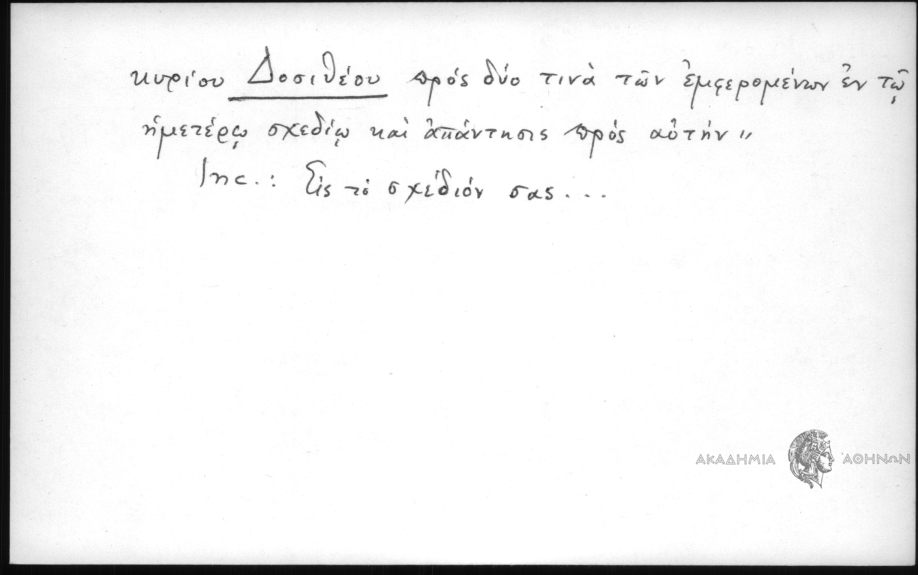 κυρίου Δοσιθέου πρός δύο τινὰ τῶν ἐμφερομένων ἐν τῷ
ἡμετέρῳ σχεδίῳ καὶ ἀπάντησις πρός αὐτήν"
Inc.: Εἰς τὸ σχέδιόν σας...
ΑΚΑΔΗΜΙΑ ΑΘΗΝΩΝ